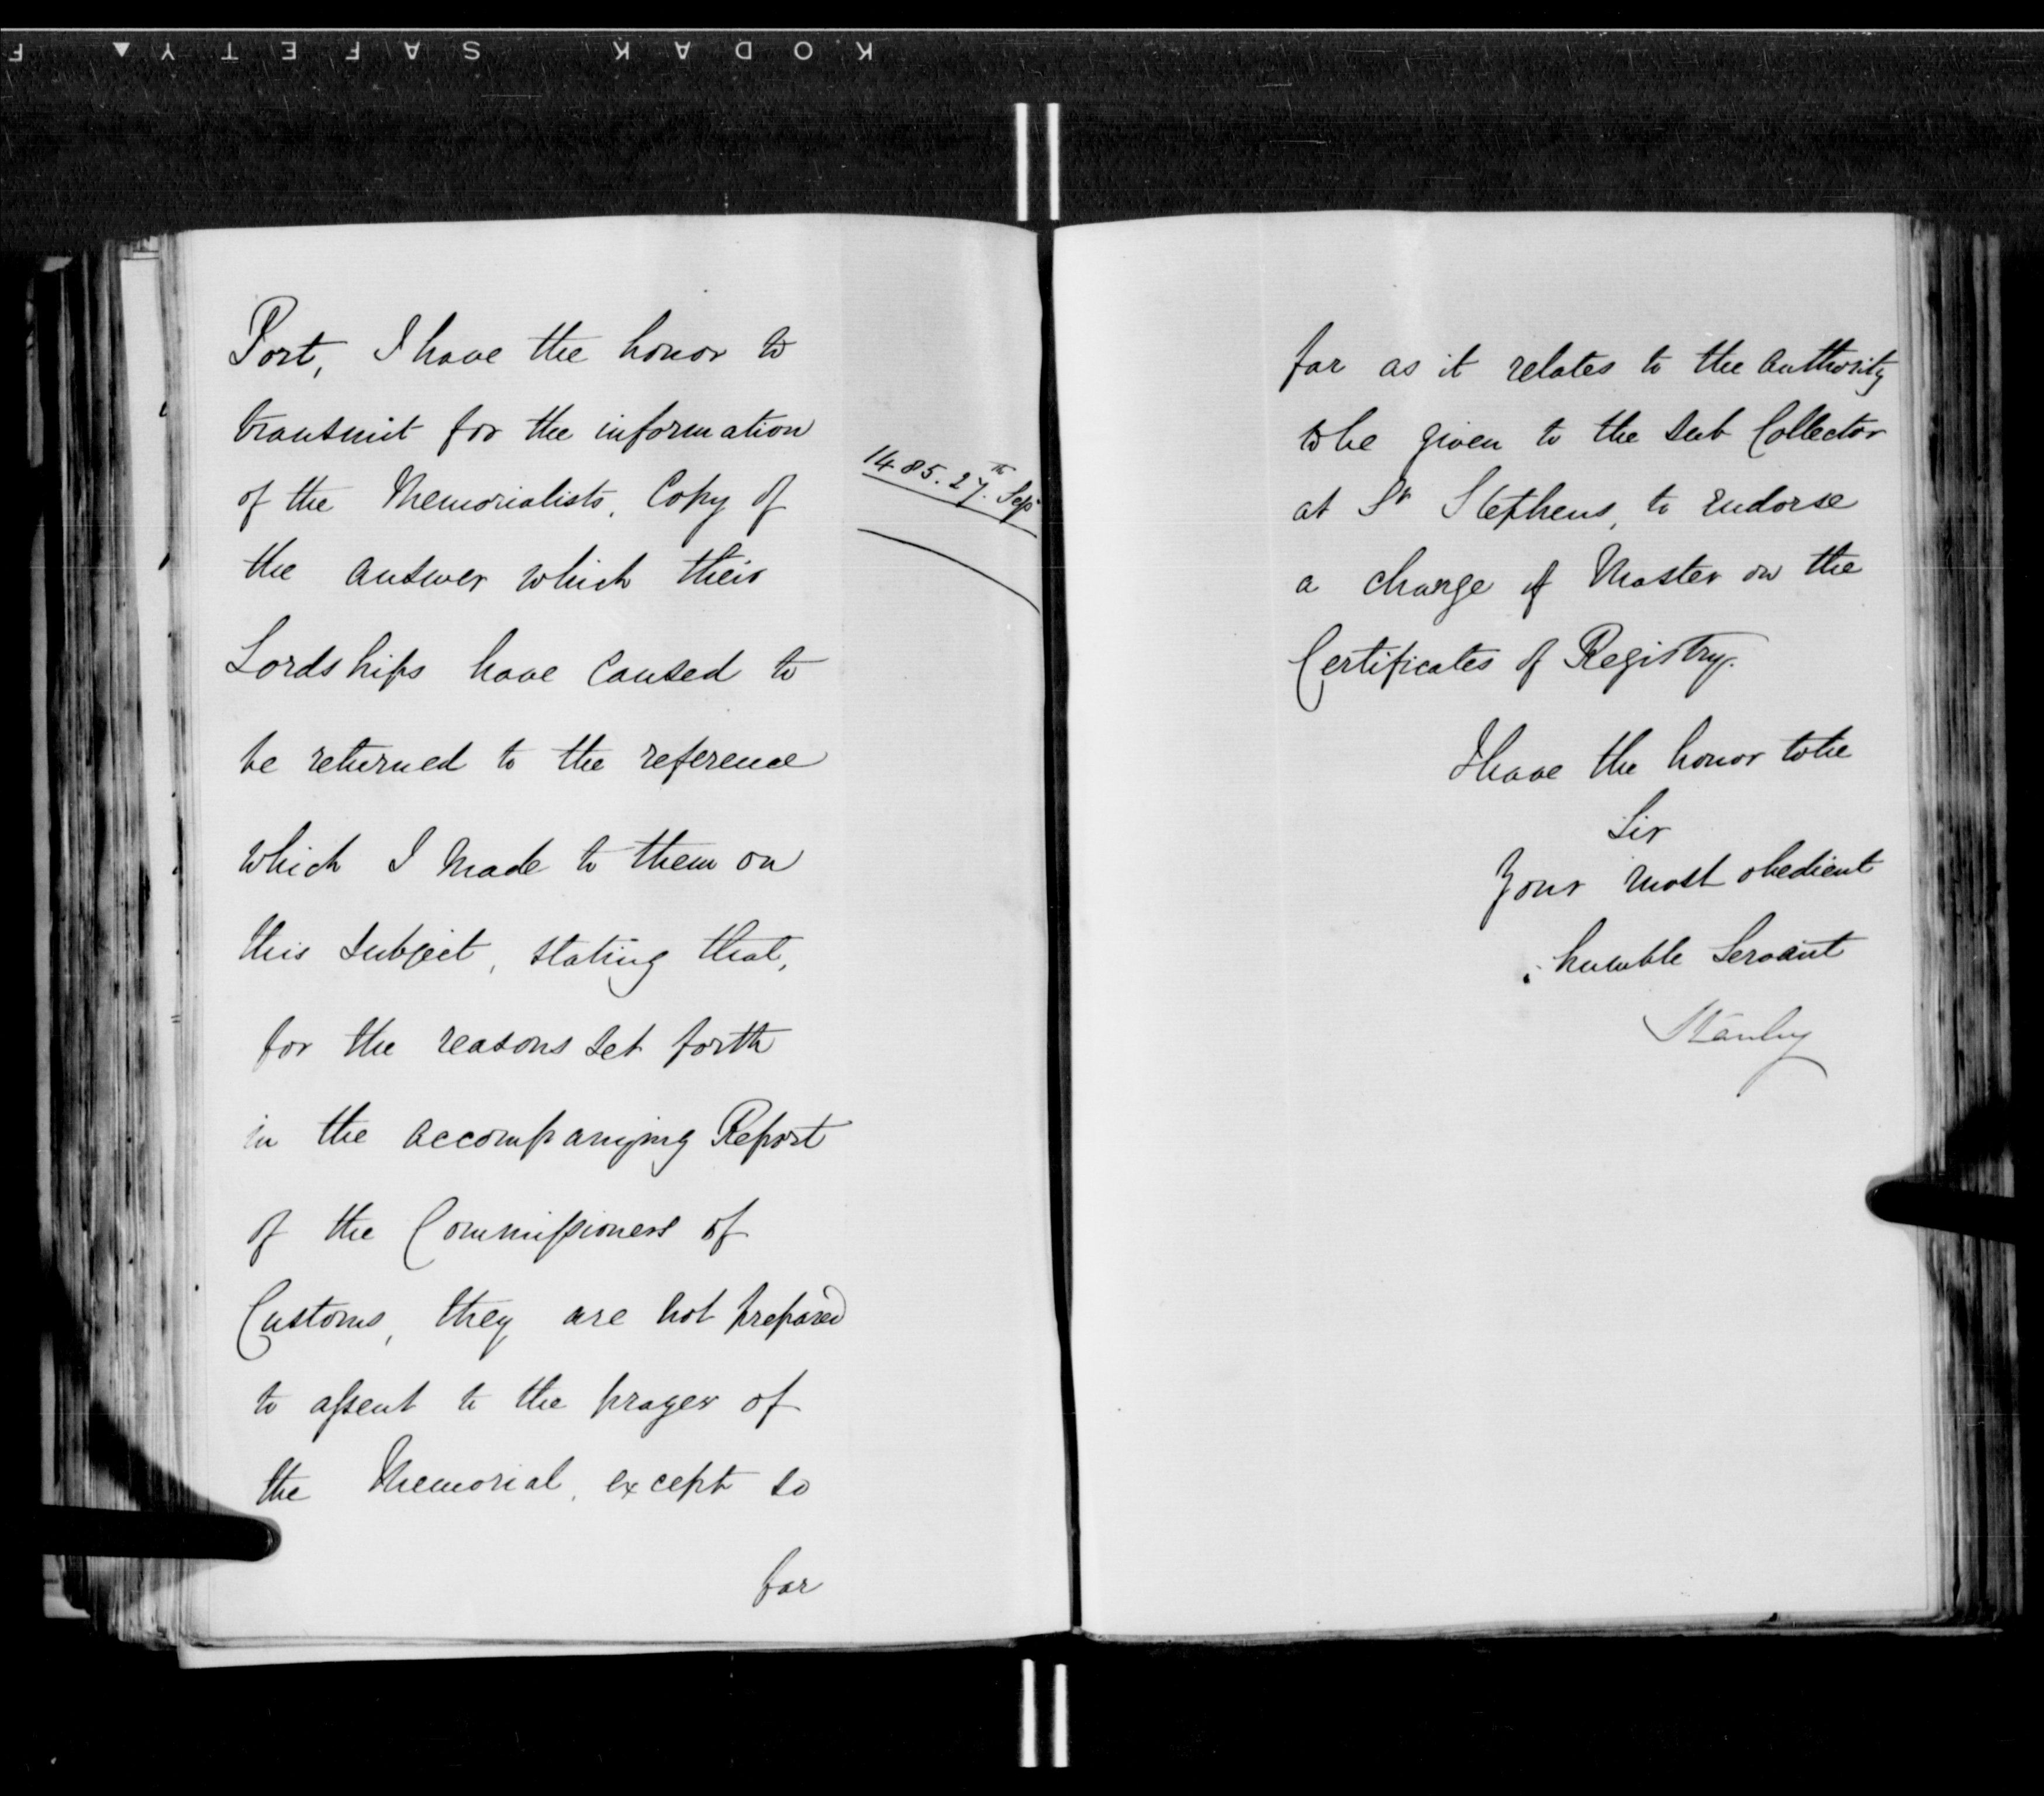 KODAK SAFETY ▲ F
Port, I have the honor to
transmit for the information
of the Memorialists, Copy of
the answer which their
Lordships have caused to
be returned to the reference
which I made to them on
this subject, stating that,
for the reasons set forth
in the accompanying Report
of the Commissioners of
Customs, they are not prepared
to assent to the prayer of
the Memorial, except so
far
1485. 27th Sep
far as it relates to the authority
to be given to the Sub Collector
at St Stephens, to endorse
a change of Master on the
Certificates of Registry.
I have the honor to be
Sir
Your most obedient
humble Servant
Stanley